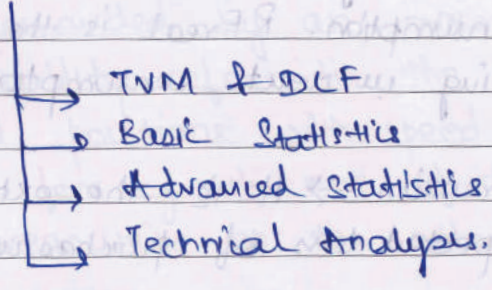 TVM & DCF
Basic Statistics
Advanced Statistics
Technical Analysis.